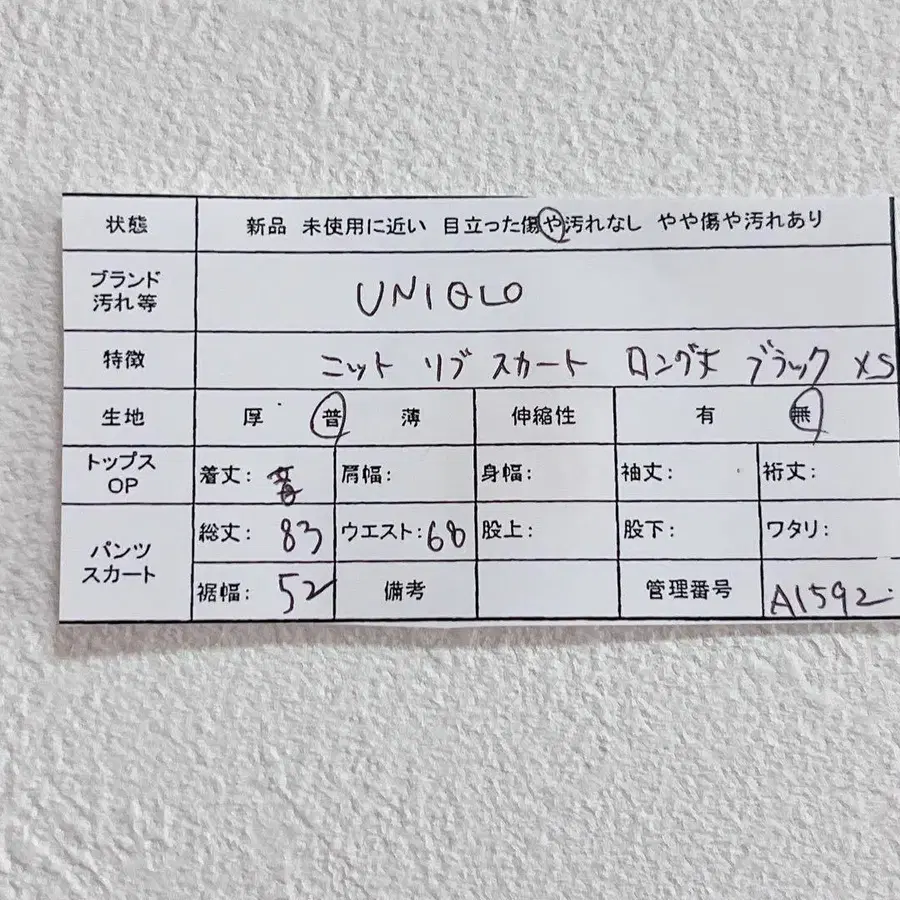 状態 新品 未使用に近い 目立った傷や汚れなし やや傷や汚れあり
ブランド
汚れ等 UNIQLO
特徴 ニット リブ スカート ロング丈 ブラック XS
生地 厚 普 薄 伸縮性 有 無
トップス
OP 着丈: 肩幅: 身幅: 袖丈: 裄丈:
パンツ
スカート 総丈: 83 ウエスト: 68 股上: 股下: ワタリ:
裾幅: 52 備考 管理番号 A1592